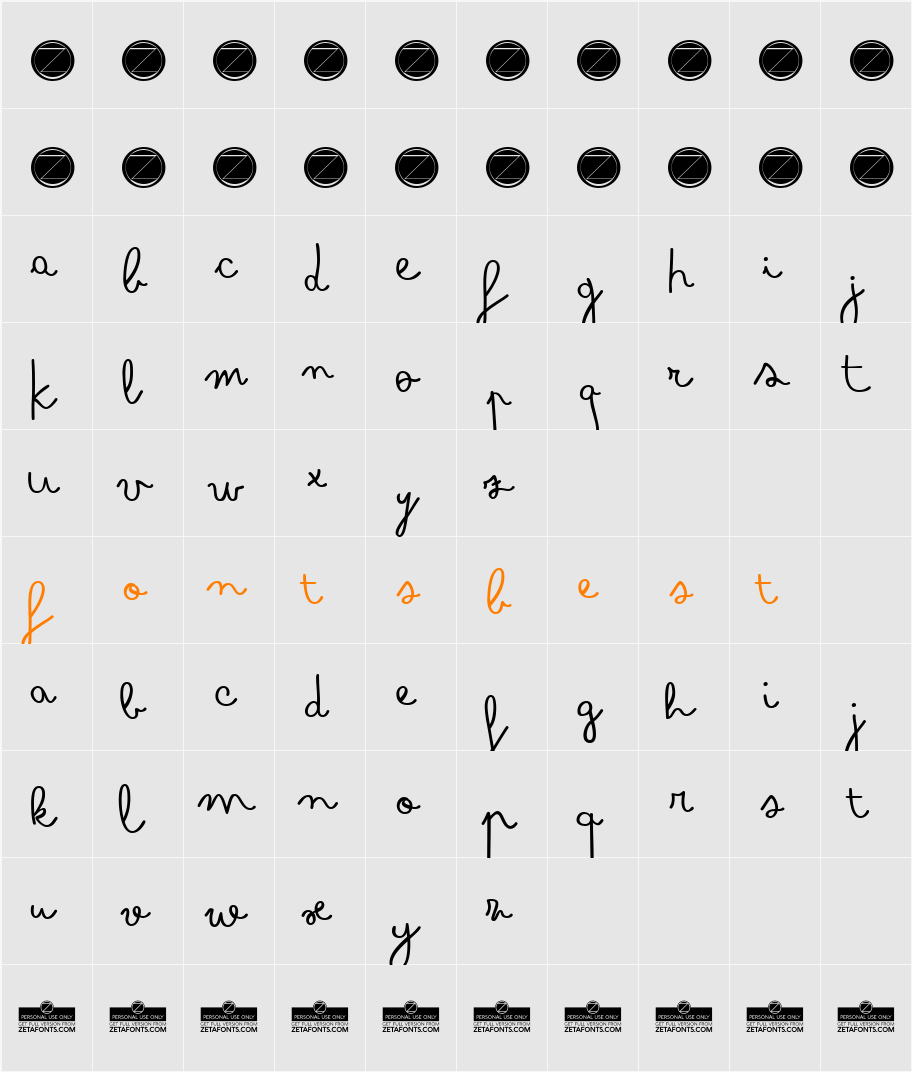 a b c d e f g h i j
k l m n o p q r s t
u v w x y z
f o n t s b e s t
a b c d e f g h i j
k l m n o p q r s t
u v w x y z
PERSONAL USE ONLY PERSONAL USE ONLY PERSONAL USE ONLY PERSONAL USE ONLY PERSONAL USE ONLY PERSONAL USE ONLY PERSONAL USE ONLY PERSONAL USE ONLY PERSONAL USE ONLY PERSONAL USE ONLY
GET FULL VERSION FROM GET FULL VERSION FROM GET FULL VERSION FROM GET FULL VERSION FROM GET FULL VERSION FROM GET FULL VERSION FROM GET FULL VERSION FROM GET FULL VERSION FROM GET FULL VERSION FROM GET FULL VERSION FROM
ZETAFONTS.COM ZETAFONTS.COM ZETAFONTS.COM ZETAFONTS.COM ZETAFONTS.COM ZETAFONTS.COM ZETAFONTS.COM ZETAFONTS.COM ZETAFONTS.COM ZETAFONTS.COM